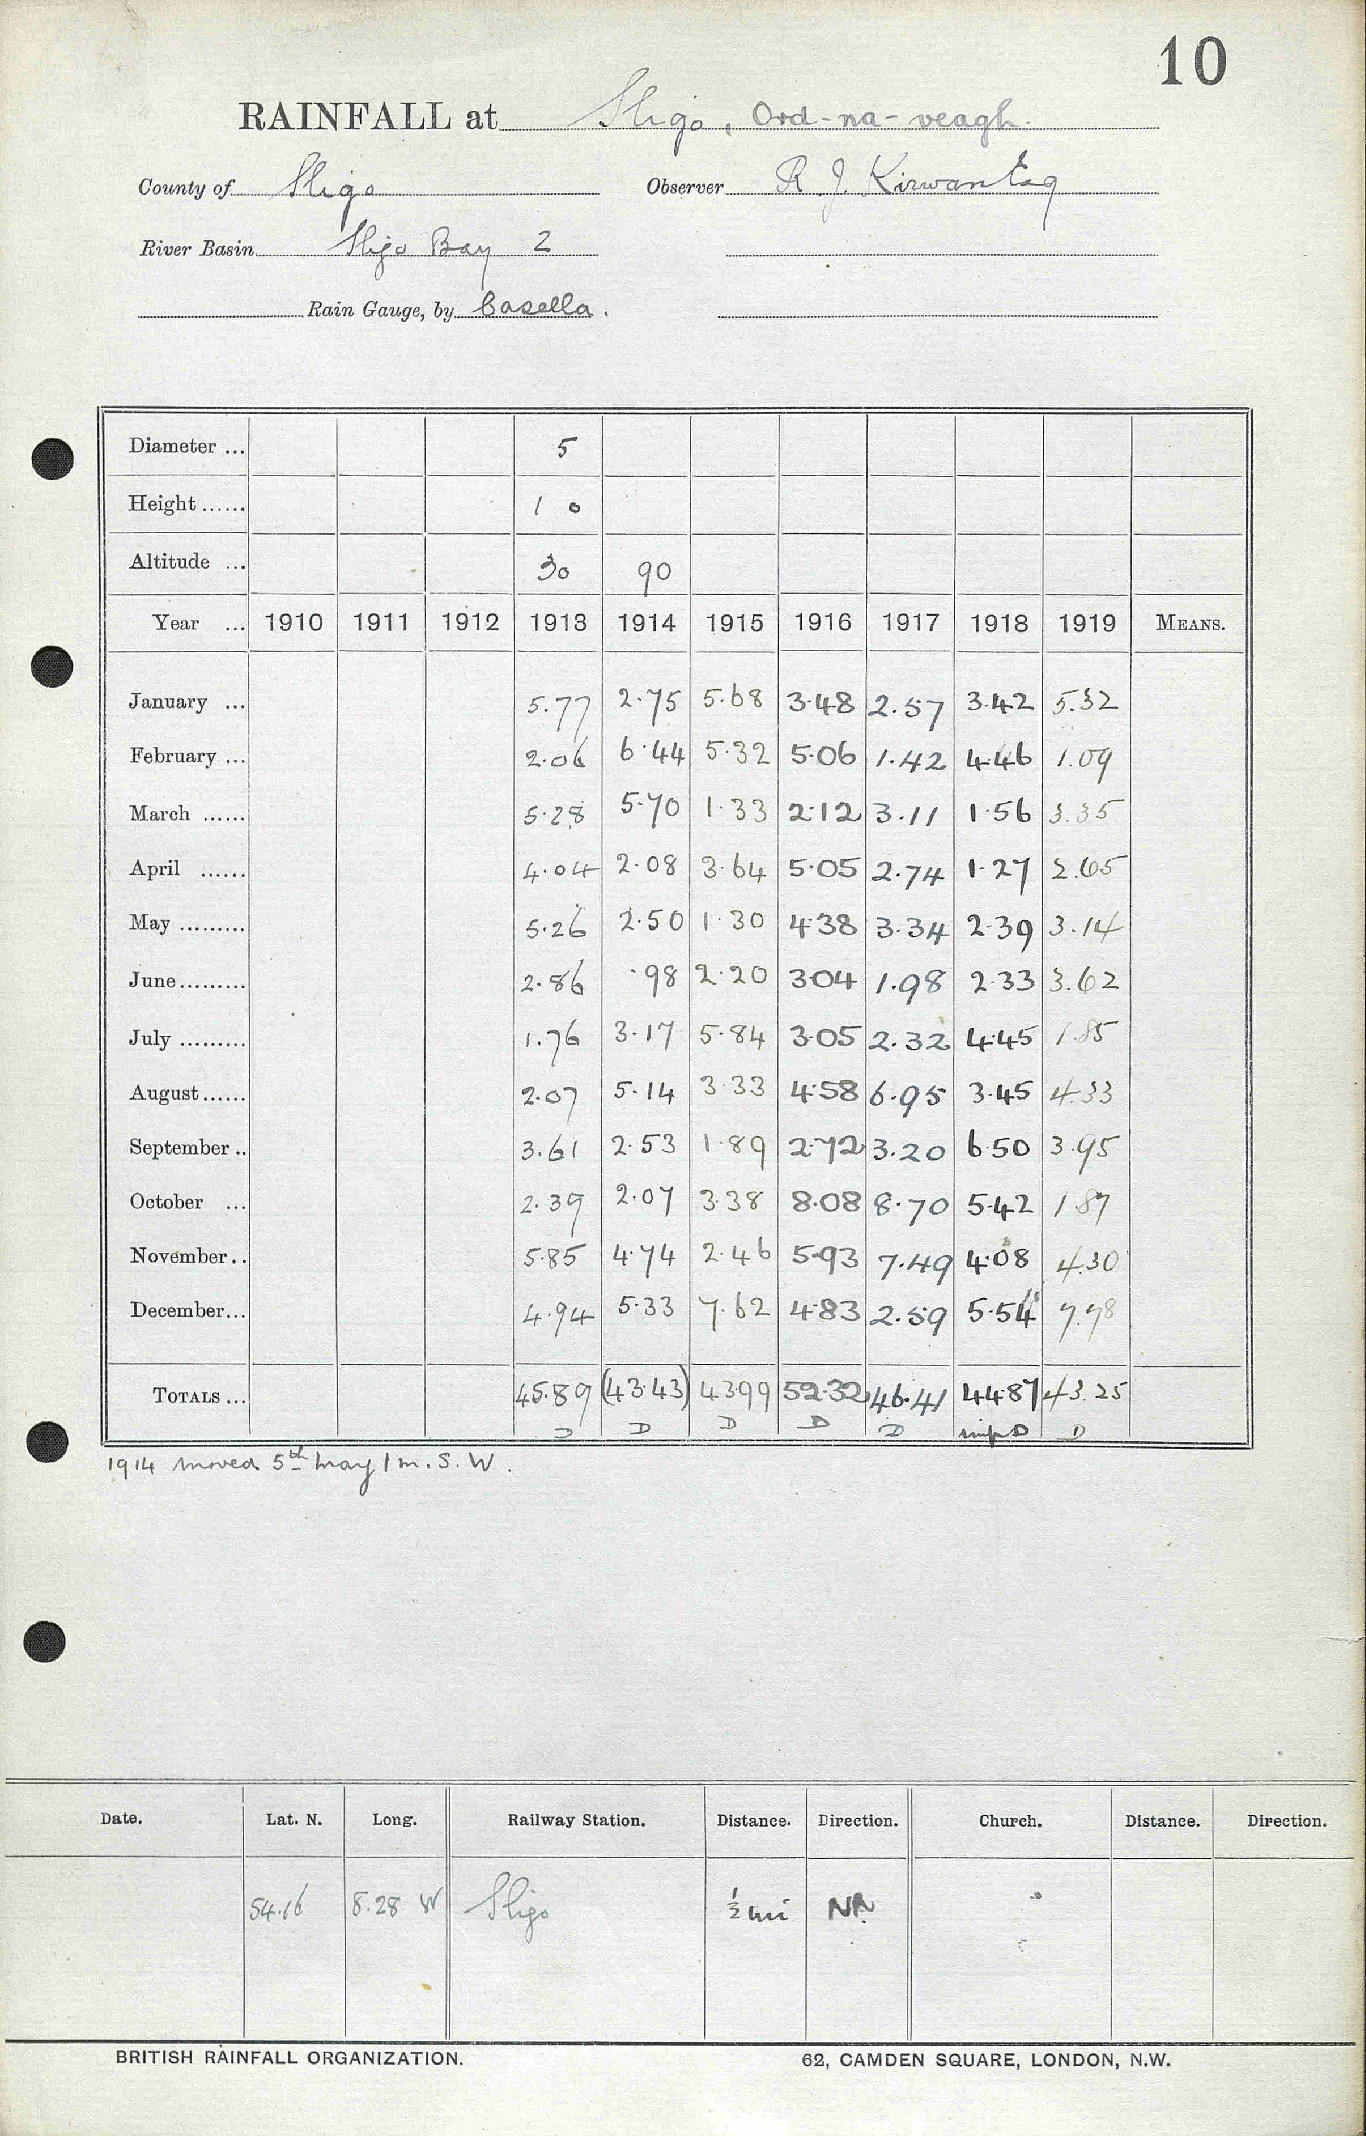 10
RAINFALL at Sligo, Ord-na-veagh.
County of Sligo Observer R. J. Kirwan Esq
River Basin Sligo Bay 2
Rain Gauge, by Casella.
Diameter ... 5
Height ...... 1 0
Altitude ... 30 90
Year ... 1910 1911 1912 1913 1914 1915 1916 1917 1918 1919 MEANS.
January ... 5.77 2.75 5.68 3.48 2.57 3.42 5.32
February ... 2.06 6.44 5.32 5.06 1.42 4.46 1.09
March ...... 5.28 5.70 1.33 2.12 3.11 1.56 3.35
April ...... 4.04 2.08 3.64 5.05 2.74 1.27 2.65
May ......... 5.26 2.50 1.30 4.38 3.34 2.39 3.14
June ......... 2.86 .98 2.20 3.04 1.98 2.33 3.62
July ......... 1.76 3.17 5.84 3.05 2.32 4.45 1.85
August ...... 2.07 5.14 3.33 4.58 6.95 3.45 4.33
September .. 3.61 2.53 1.89 2.72 3.20 6.50 3.95
October ... 2.39 2.07 3.38 8.08 8.70 5.42 1.87
November .. 5.85 4.74 2.46 5.93 7.49 4.08 4.30
December ... 4.94 5.33 7.62 4.83 2.59 5.54 7.78
TOTALS ... 45.89 (43.43) 43.99 52.32 46.41 44.87 43.25
D D D D D D D
1914 moved 5th May 1 m. S.W.
Date. Lat. N. Long. Railway Station. Distance. Direction. Church. Distance. Direction.
54.16 8.28 W Sligo ½ mi
BRITISH RAINFALL ORGANIZATION. 62, CAMDEN SQUARE, LONDON, N.W.